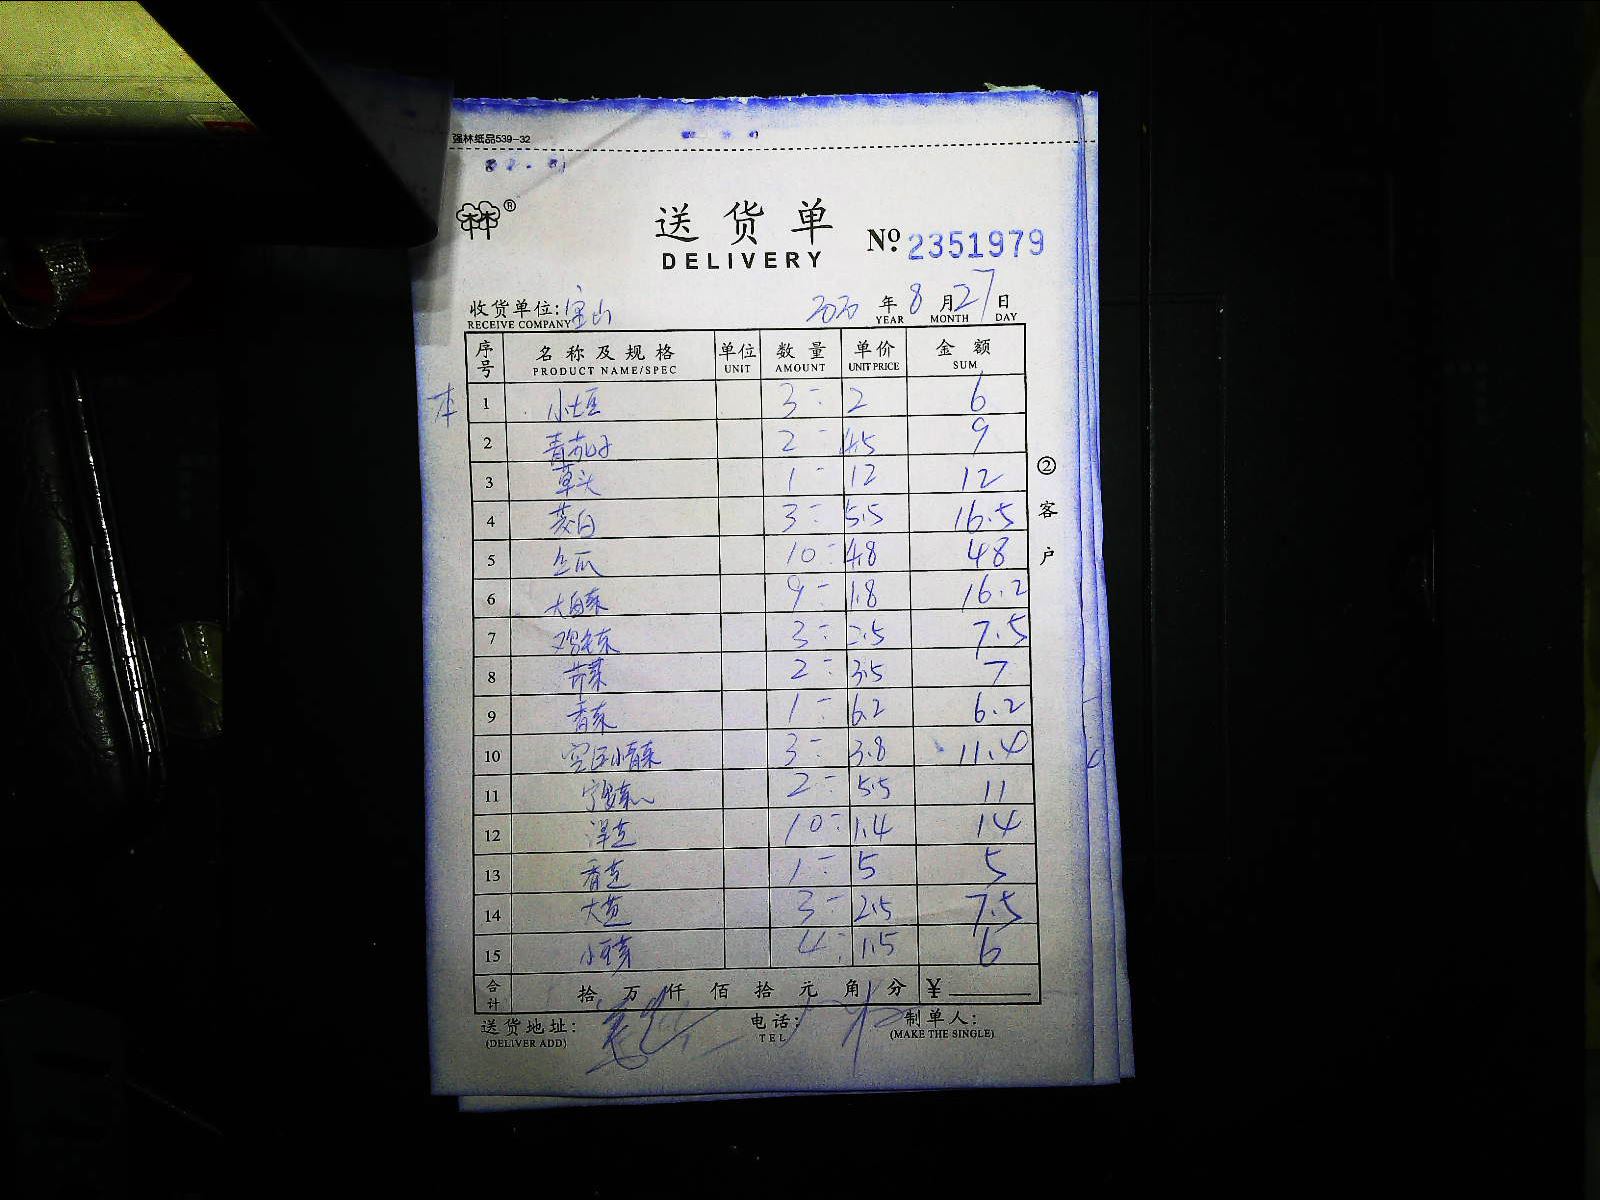 强林纸品539-32
®
送货单
DELIVERY
№ 2351979
收货单位: 宝山 2020 年 8 月 27 日
RECEIVE COMPANY YEAR MONTH DAY
序号 名称及规格 单位 数量 单价 金额
PRODUCT NAME/SPEC UNIT AMOUNT UNIT PRICE SUM
1 小土豆 3 2 6
2 青茄子 2 4.5 9
3 草头 1 12 12
4 茭白 3 5.5 16.5
5 10 4.8 48
6 大白菜 9 1.8 16.2
7 鸡毛菜 3 2.5 7.5
8 芹菜 2 3.5 7
9 香菜 1 6.2 6.2
10 小青菜 3 3.8 11.4
11 2 5.5 11
12 洋芝 10 1.4 14
13 香芝 1 5 5
14 大葱 3 2.5 7.5
15 小豆芽 4 1.5 6
合计 拾 万 仟 佰 拾 元 角 分 ¥
送货地址: 电话: 制单人:
(DELIVER ADD) TEL (MAKE THE SINGLE)
②客户